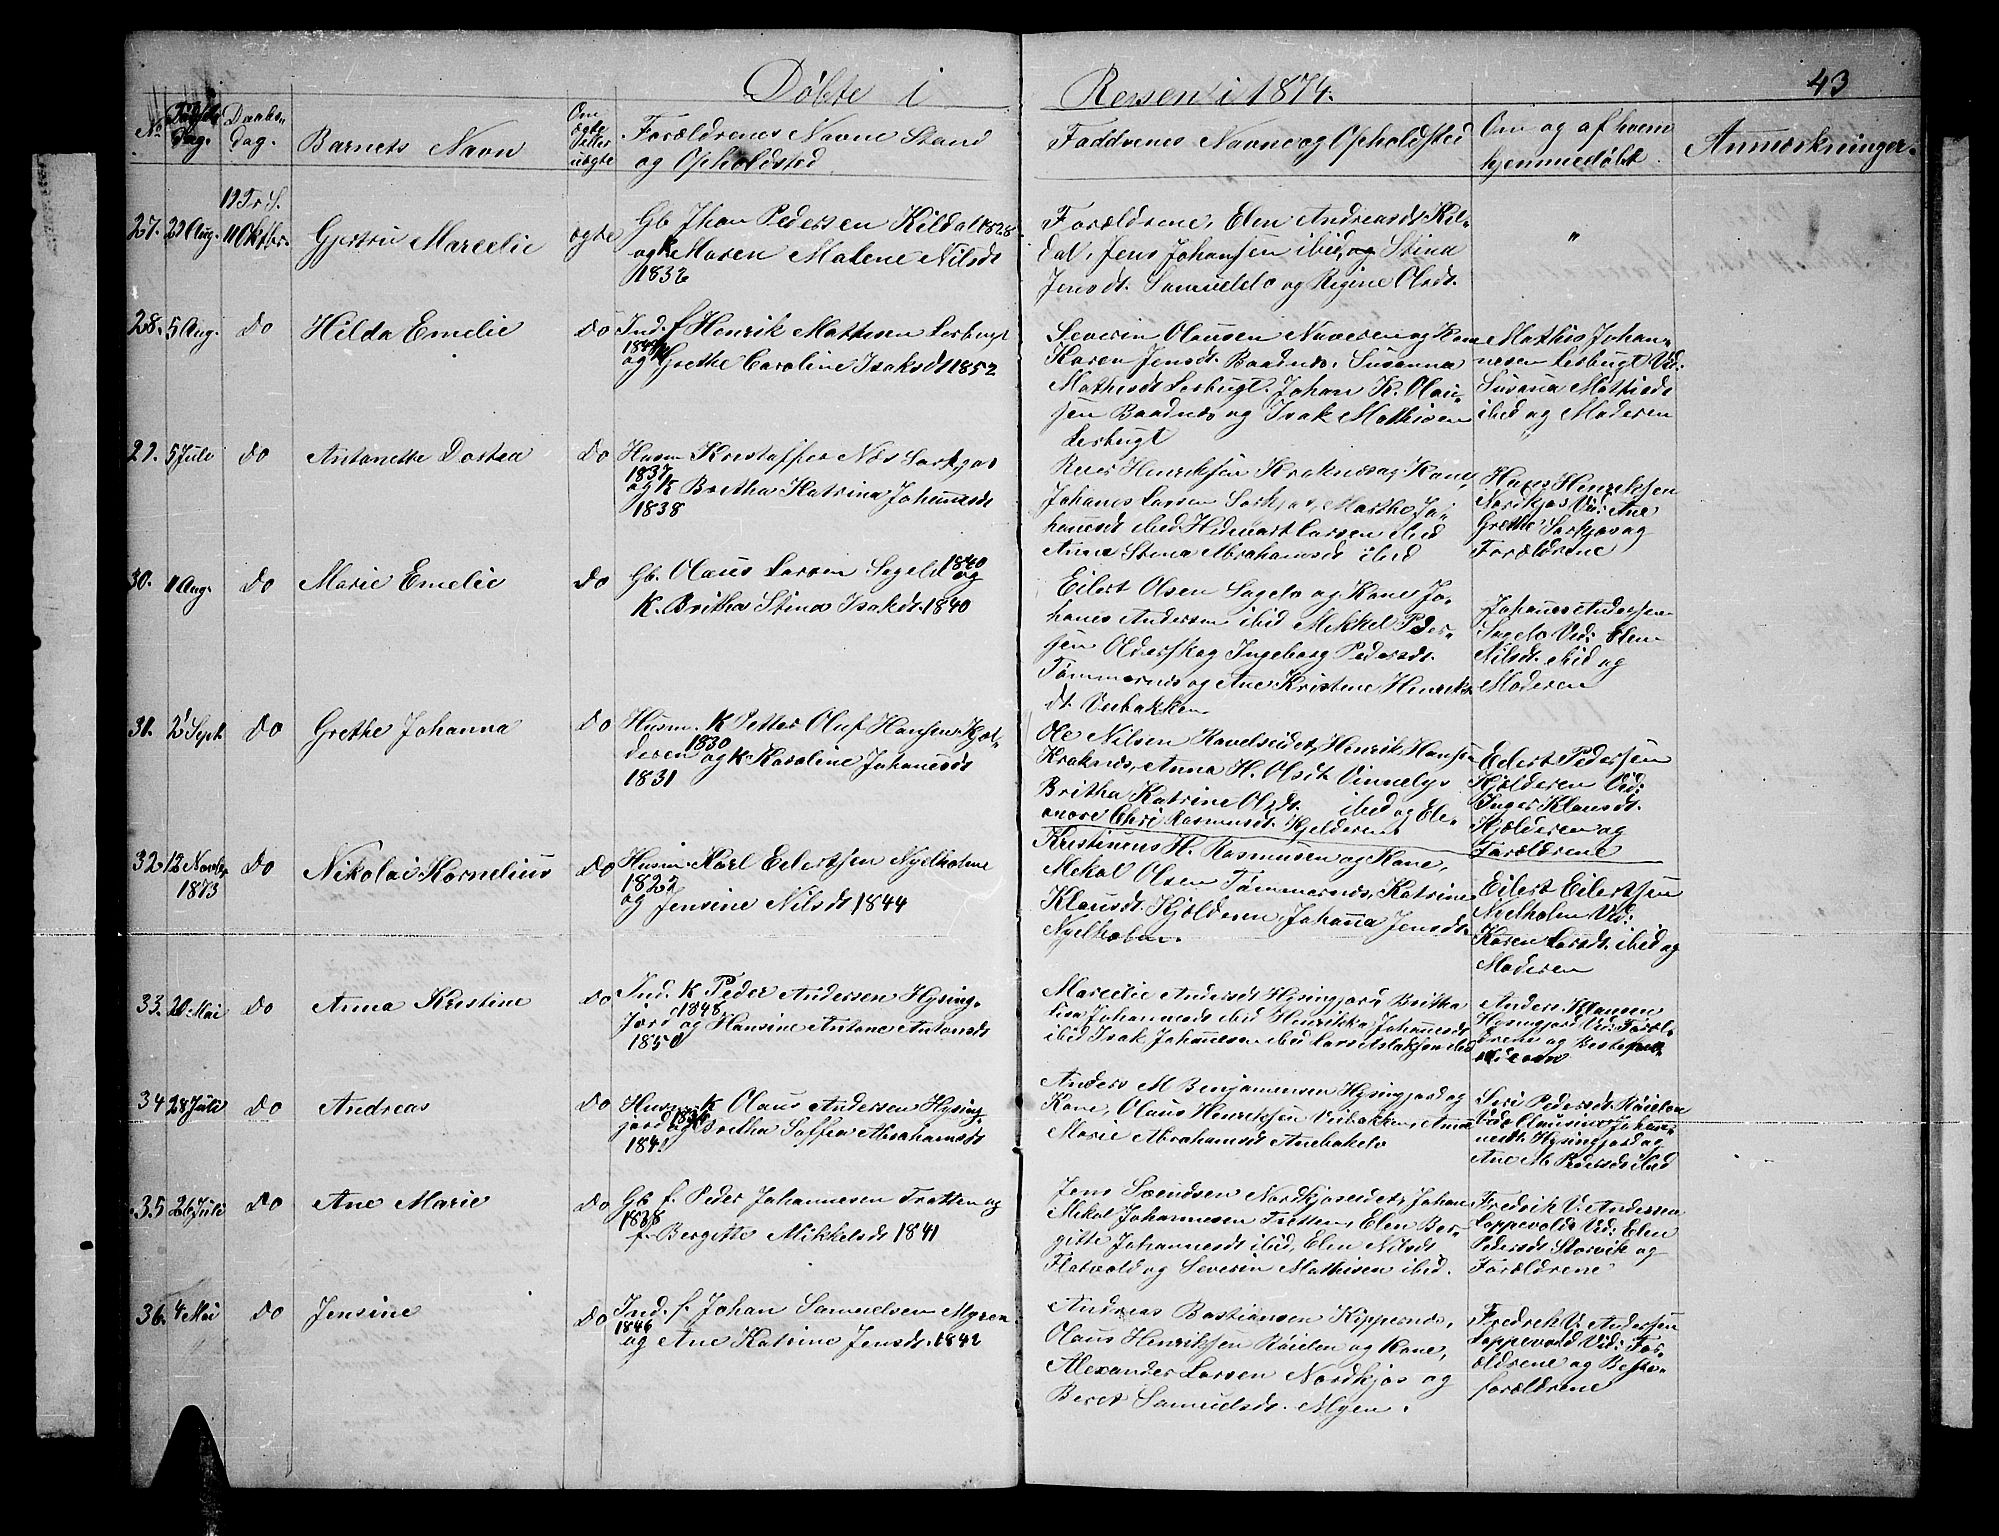 43
Døbte i Ressen i 1874.
No
Fødsels dag.
Daabs dag.
Barnets Navn
Om ægte eller uægte
Forældrenes Navne Stand
og Opholdsted
Faddrenes Navne og Opholdsted
Om og af hvem
hjemmedøbt
Anmærkninger.
19 Tr. S.
27. 29 Aug. 11 Oktbr. Gjertru Marcelie ægte
Gb. Jhan Pedersen Kildal 1828
og K Maren Malene Nilsdt
1832
Forældrene, Elen Andreasdt Kil-
dal, Jens Johansen ibid, og Stina
Jensdt. Samuelslo og Rigine Olsdt.
"
28. 5 Aug. do Hilda Emelie do
Ind. f Henrik Mathisen Lerbugt
og Grethe Caroline Isaksdt 1852
Severin Olausen Naveren og Kone
Karen Jensdt. Baadnes, Susanna
Mathisdt Lerbugt. Johan K. Olau-
sen Baadnes og Isak Mathisen
Lerbugt
Mathis Johan-
nesen Lerbugt Vid:
Susana Mathisdt
ibid og Moderen
29. 5 Juli do Antonette Dortea do
Husm Kristaffer Nils Sørkjos
1837
og K Bretha Katrina Johanesdt
1838
Peder Henriksen Kraknes og Kone,
Johanes Larsen Sørkjos, Marthe Jo-
hanesdt ibid Hideart Larsen ibid
Anne Stina Abrahamsdt ibid
Hans Henriksen
Nordkjos Vid: Ane
Grethe Sørkjos og
Forældrene
30. 1 Aug. do Marie Emelie do
Gb. Olaus Larsen Sagelv 1840
og
K. Britha Stina Isaksdt. 1840
Eilert Olsen Sagelv og Kone Jo-
hanes Andersen ibid Mekkel Peder-
sen Olderskog Ingeborg Pedersdt.
Tømmernes og Ane Kristine Henriks-
dt. Veibakken
Johanes Andersen
Sagelv Vid: Elen
Nilsdt. ibid og
Moderen
31. 21 Sept. do Grethe Johanna do
Husm. K Petter Oluf Hansen Kjøl-
deren 1830
og K Karoline Johanesdt
1831
Ole Nilsen Havelseidet, Henrik Hansen
Kraknes, Anna H. Olsdt Vinnelys
Britha Katrine Olsdt. ibid og Ele-
onore Chri Rasmusdt. Kjelderen
Eilert Pedersen
Kjølderen Vid:
Inger Klausdt.
Kjølderen og
Forældrene
32. 12 Novbr 1873 do Nikolai Kornelius do
Husm. Karl Eilertsen Nyelholme
1827
og Jensine Nilsdt 1844
Kristinus H. Rasmusen og Kone,
Mekal Olsen Tømmernes, Katrine
Klausdt. Kjølderen, Johanna Jensdt.
Nyelholm.
Eilert Eilertsen
Nyelholm Vid:
Karen Larsdt. ibid og
Moderen
33. 20 Mai do Anna Kristine do
Ind. K Peder Andersen Hysing-
jord 1848
og Hansine Antone Antonsdt
1850
Marcelie Andersdt Hysingjord, Britha
Lisa Johannesdt ibid Henrikka Johanesdt
ibid Isak Johannesen ibid Lars Aslaksen ibid
Anders Klausen
Hysingjord Vid: Foræl-
drene og Bestefor-
34 28 Juli do Andreas do
Husm. K Olaus Andersen Hysing-
jord
og K Bretha Soffia Abrahamsdt
Anders M Benjaminsen Hysingjord og
Kone, Olaus Henriksen Veibakken, Anne
Marie Abrahamsdt Andbakelv
Seri Pedersdt. Røielen
Vid: Olausine Johan-
nesdt. Hysingjord og
Ane M. Pedersdt ibid
35 26 Juli do Ane Marie do
Gb f. Peder Johannesen Tratten og
1838
f. Bergette Mikkelsdt 1841
Jens Svendsen Nordkjoseidet, Johan
Mikal Johannesen Tretten, Elen Ber-
gitte Johannesdt ibid, Elen Nilsdt
Flatvold og Severin Mathisen ibid.
Fredrik V. Andersen
Loppevold Vid: Elen
Pedersdt Storvik og
Forældrene
36. 4 Mai do Jensine do
Ind. f. Johan Samuelsen Myren
1846
og Ane Katrina Jensdt. 1842
Andreas Bastiansen Kippernes,
Olaus Henriksen Røielen og Kone,
Alexander Larsen Nordkjos og
Beret Samuelsdt. Myren.
Fredrik V. Andersen
Loppevold Vid: For-
ældrene og Beste-
forældrene